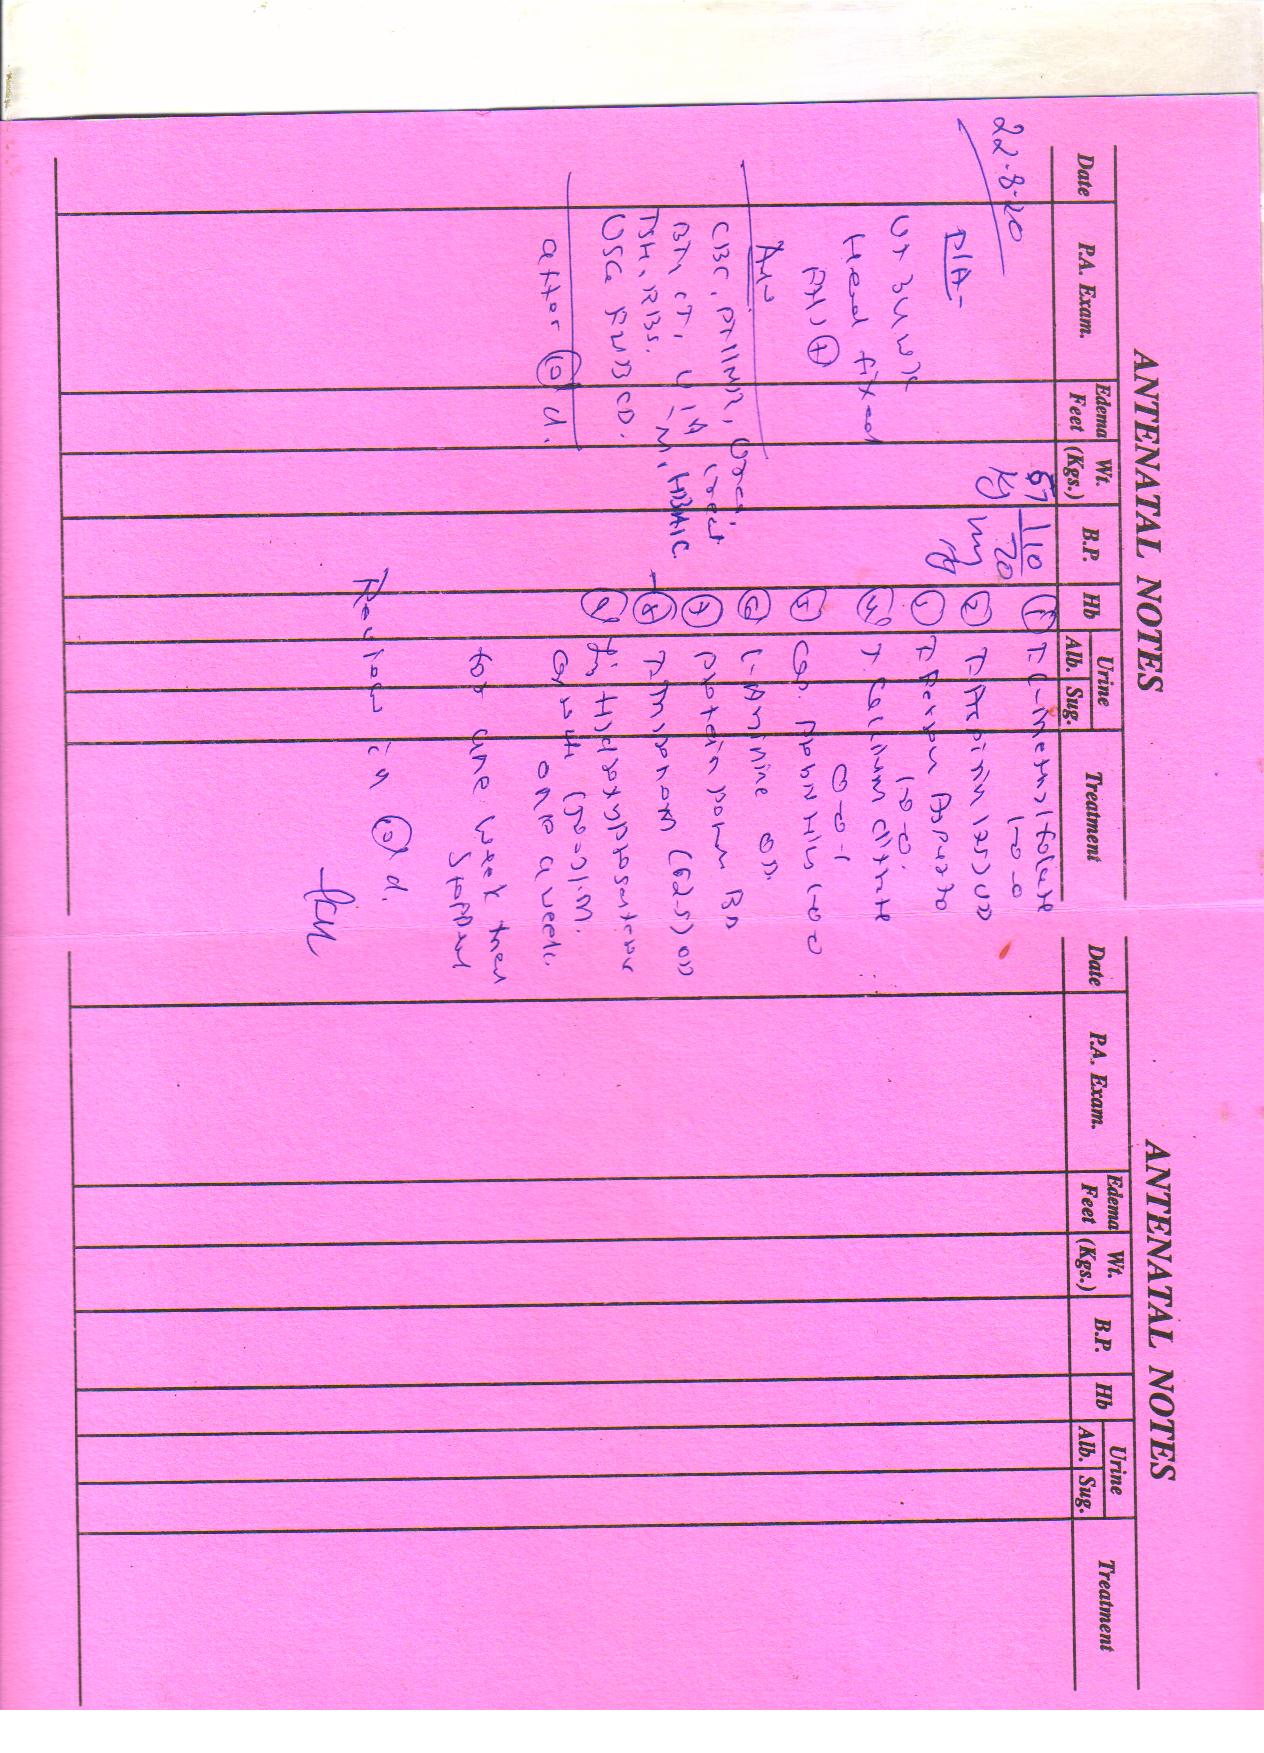 ANTENATAL NOTES
Date P.A. Exam. Edema Feet Wt. (Kgs.) B.P. Hb Urine Alb. Sug. Treatment
22.8.20
P/A-
Ut 34 wk
Head fixed
FHS +
Adv
CBC, PT/INR, Urea,
creat
BT, CT, U/A
-M, HBA1C
TSH, RBS.
USG FWB CD.
after 10 d.
67
Kg
110
70
① T. L-methylfolate
1-0-0
② T. Aspirin (75) OD
T.
1-0-0.
④ T. Calcium Citrate
0-0-1
⑤ Cap. 1-0-0
⑥ L-Arginine OD.
⑦ Protein powder BD
⑧ T. (62.5) OD
⑨ Inj Hydroxyprogesterone
(500) I.M.
once a week.
for one week then
stopped
Review in 10 d.
ANTENATAL NOTES
Date P.A. Exam. Edema Feet Wt. (Kgs.) B.P. Hb Urine Alb. Sug. Treatment